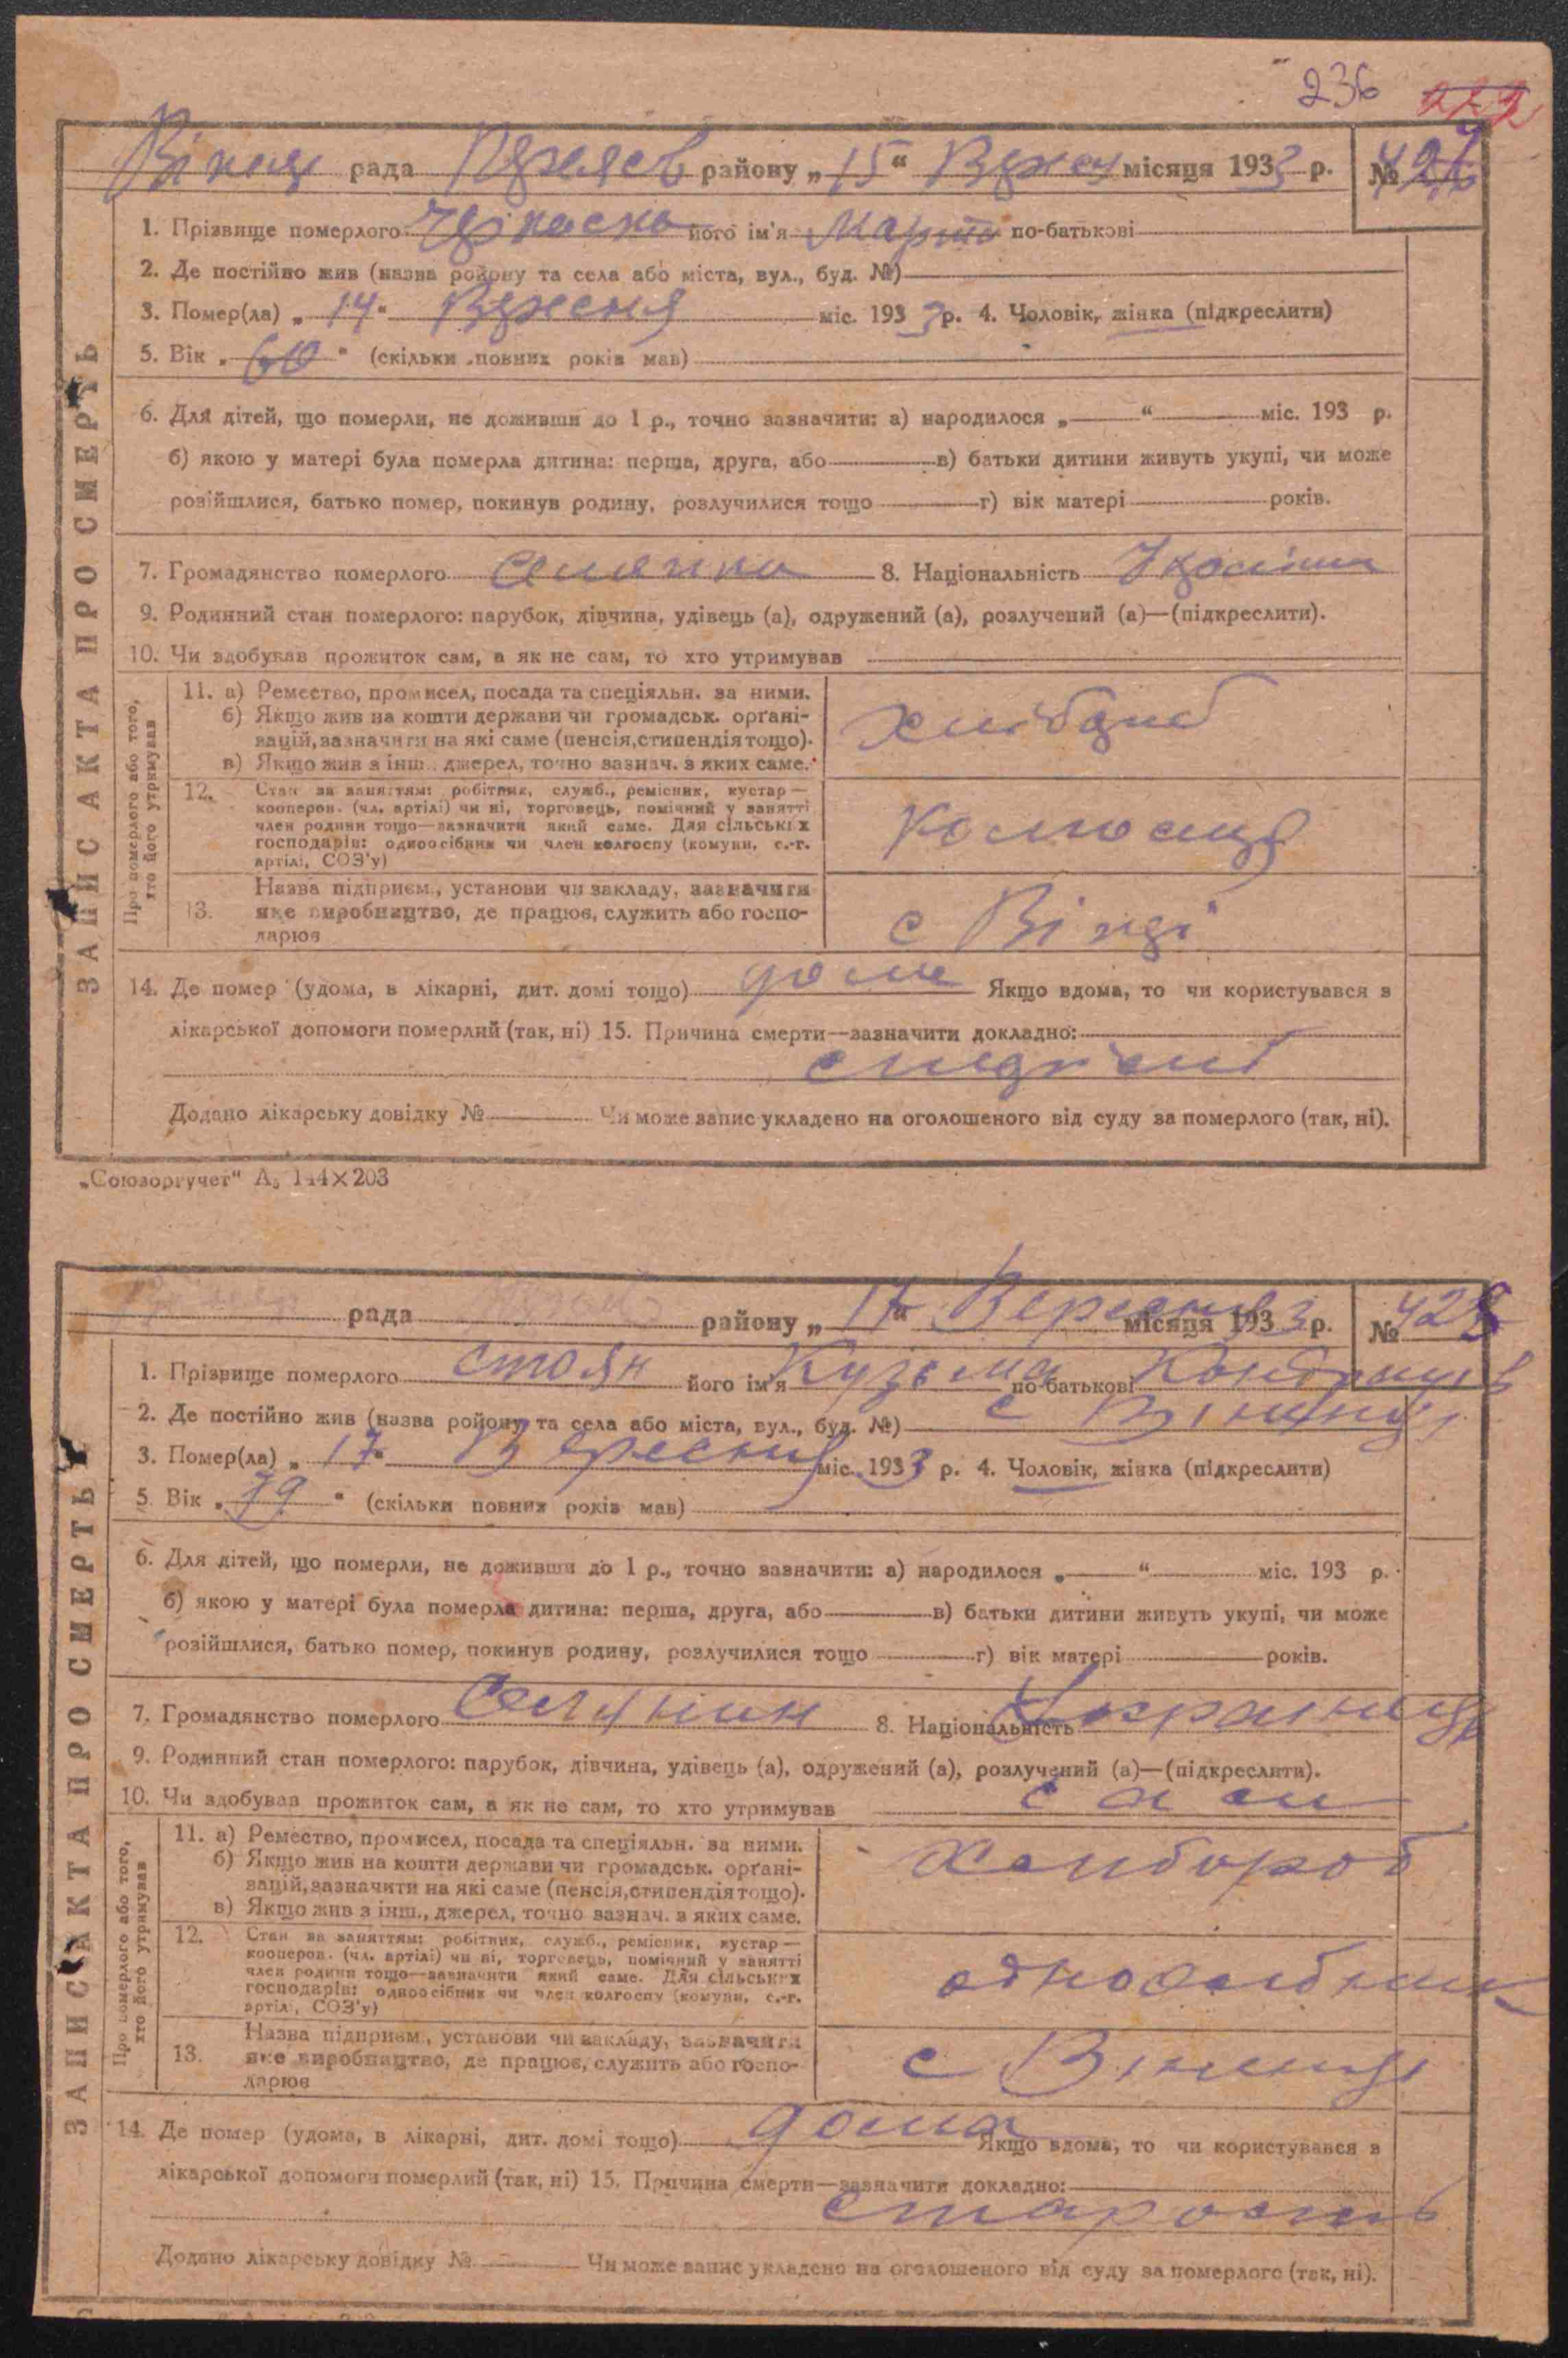 236
рада району „15“ місяця 1933 р. №
1. Прізвище померлого його ім'я Марта по-батькові
2. Де постійно жив (назва ройону та села або міста, вул., буд. №)
3. Помер(ла) „14“ Вересня міс. 1933 р. 4. Чоловік, жінка (підкреслити)
5. Вік „60“ (скільки повних років мав)
6. Для дітей, що померли, не доживши до 1 р., точно зазначити: а) народилося „ “ міс. 193 р.
б) якою у матері була померла дитина: перша, друга, або в) батьки дитини живуть укупі, чи може
розійшлися, батько помер, покинув родину, розлучилися тощо г) вік матері років.
7. Громадянство померлого селянка 8. Національність
9. Родинний стан померлого: парубок, дівчина, удівець (а), одружений (а), розлучений (а)—(підкреслити).
10. Чи здобував прожиток сам, а як не сам, то хто утримував
ЗАПИС АКТА ПРО СМЕРТЬ
Про померлого або того,
хто його утримував
11. а) Ремество, промисел, посада та спеціяльн. за ними.
б) Якщо жив на кошти держави чи громадськ. орґані-
зацій, зазначити на які саме (пенсія, стипендія тощо).
в) Якщо жив з інш., джерел, точно зазнач. з яких саме.
12. Стан за заняттям: робітник, служб., ремісник, кустар—
кооперов. (чл. артілі) чи ні, торговець, помічний у занятті
член родини тощо—зазначити який саме. Для сільських
господарів: одноосібник чи член колгоспу (комуни, с.-г.
артілі, СОЗ'у)
Назва підприєм., установи чи закладу, зазначити
13. яке виробництво, де працює, служить або госпо-
дарює
с
14. Де помер (удома, в лікарні, дит. домі тощо) дома Якщо вдома, то чи користувався з
лікарської допомоги померлий (так, ні) 15. Причина смерти—зазначити докладно:
Додано лікарську довідку № Чи може запис укладено на оголошеного від суду за померлого (так, ні).
„Союзоргучет“ А₅ 144×203
рада району „17“ Вересня місяця 1933 р. № 428
1. Прізвище померлого Стоян його ім'я Кузьма по-батькові
2. Де постійно жив (назва ройону та села або міста, вул., буд. №) с
3. Помер(ла) „17“ Вересня міс. 1933 р. 4. Чоловік, жінка (підкреслити)
5. Вік „79“ (скільки повних років мав)
6. Для дітей, що померли, не доживши до 1 р., точно зазначити: а) народилося „ “ міс. 193 р.
б) якою у матері була померла дитина: перша, друга, або в) батьки дитини живуть укупі, чи може
розійшлися, батько помер, покинув родину, розлучилися тощо г) вік матері років.
7. Громадянство померлого Селянин 8. Національність
9. Родинний стан померлого: парубок, дівчина, удівець (а), одружений (а), розлучений (а)—(підкреслити).
10. Чи здобував прожиток сам, а як не сам, то хто утримував сам
ЗАПИС АКТА ПРО СМЕРТЬ
Про померлого або того,
хто його утримував
11. а) Ремество, промисел, посада та спеціяльн. за ними.
б) Якщо жив на кошти держави чи громадськ. орґані-
зацій, зазначити на які саме (пенсія, стипендія тощо).
в) Якщо жив з інш., джерел, точно зазнач. з яких саме.
12. Стан за заняттям: робітник, служб., ремісник, кустар—
кооперов. (чл. артілі) чи ні, торговець, помічний у занятті
член родини тощо—зазначити який саме. Для сільських
господарів: одноосібник чи член колгоспу (комуни, с.-г.
артілі, СОЗ'у)
Назва підприєм., установи чи закладу, зазначити
13. яке виробництво, де працює, служить або госпо-
дарює
с
14. Де помер (удома, в лікарні, дит. домі тощо) дома Якщо вдома, то чи користувався з
лікарської допомоги померлий (так, ні) 15. Причина смерти—зазначити докладно:
старость
Додано лікарську довідку № Чи може запис укладено на оголошеного від суду за померлого (так, ні).